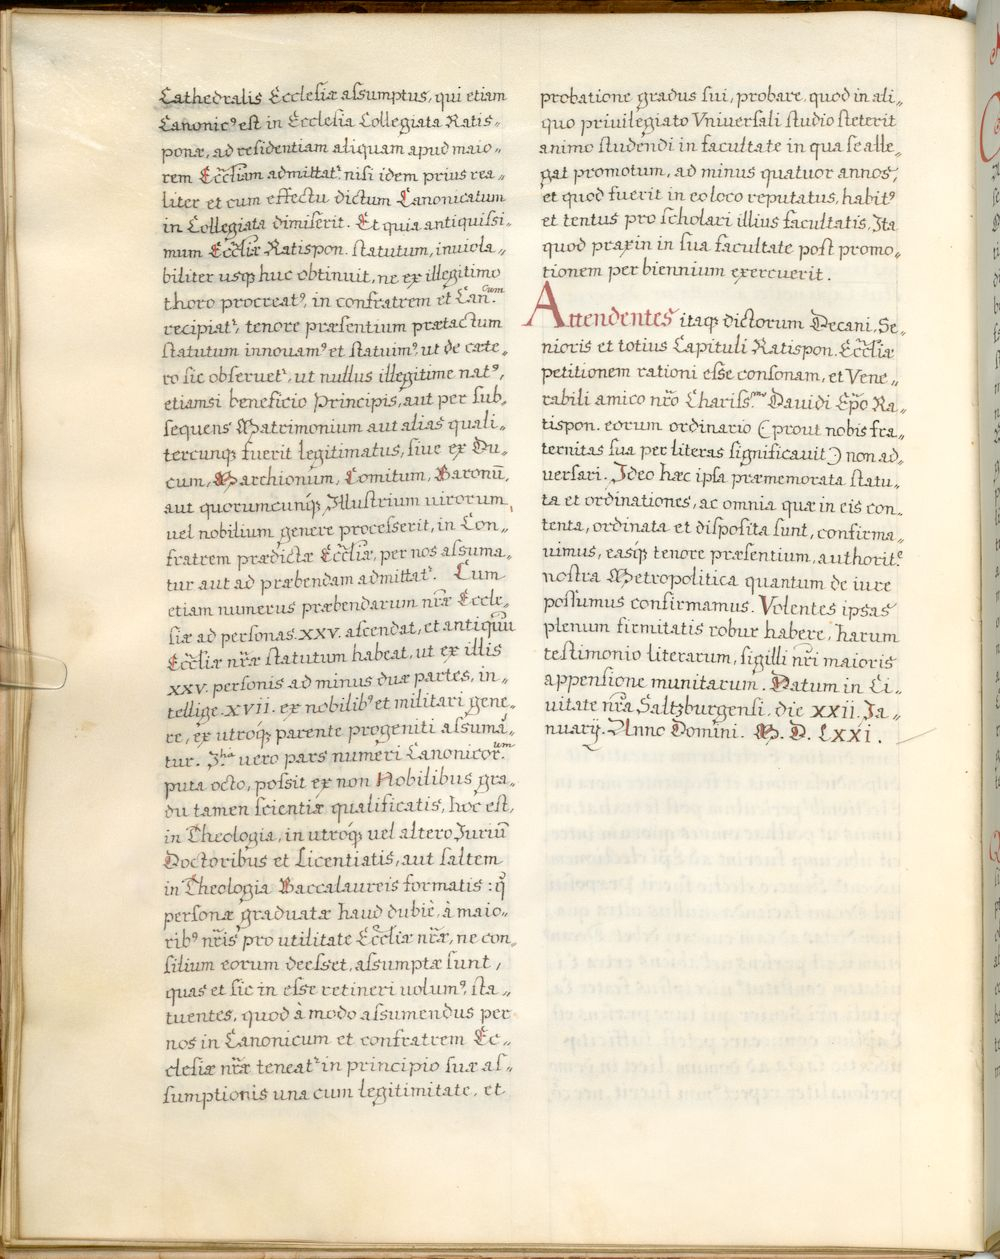 Cathedralis Ecclesiæ assumptus, qui etiam
Canonicꝰ est in Ecclesia Collegiata Ratis„
ponæ, ad residentiam aliquam apud maio„
rem Eccl̃iam admittatʳ. nisi idem prius rea„
liter et cum effectu dictum Canonicatum
in Collegiata dimiserit. Et quia antiquissi„
mum Eccl̃iæ Ratispon. statutum, inuiola„
biliter usqꝫ huc obtinuit, ne ex illegitimo
thoro procreatꝰ, in confratrem et Can.ᶜᵘᵐ
recipiatʳ, tenore præsentium prætactum
statutum innouamꝰ et statuimꝰ, ut de cæte„
ro sic obseruetʳ, ut nullus illegitime natꝰ,
etiamsi beneficio Principis, aut per sub„
sequens Matrimonium aut alias quali„
tercunqꝫ fuerit legitimatus, siue ex Du„
cum, Marchionum, Comitum, Baronũ,
aut quorumcunqꝫ Illustrium uirorum
uel nobilium genere processerit, in Con„
fratrem prædictæ Eccl̃iæ, per nos assuma„
tur aut ad præbendam admittatʳ. Cum
etiam numerus præbendarum nr̃æ Eccle„
siæ ad personas. XXV. ascendat, et antiquũ
Eccl̃iæ nr̃æ statutum habeat, ut ex illis
XXV. personis ad minus duæ partes, in„
tellige. XVII. ex nobilibꝰ et militari gene„
re, ex utroqꝫ parente progeniti assumã„
tur. 3.ᵗⁱᵃ uero pars numeri Canonicor.ᵘᵐ
puta octo, possit ex non Nobilibus gra„
du tamen scientiæ qualificatis, hoc est,
in Theologia, in utroqꝫ uel altero Juriũ
Doctoribus et Licentiatis, aut saltem
in Theologia Baccalaureis formatis: q̃
personæ graduatæ haud dubiè, à maio„
ribꝰ nr̃is pro utilitate Eccl̃iæ nr̃æ, ne con„
silium eorum deesset, assumptæ sunt,
quas et sic in esse retineri uolumꝰ, sta„
tuentes, quod à modo assumendus per
nos in Canonicum et confratrem Ec„
clesiæ nr̃æ teneatʳ in principio suæ as„
sumptionis una cum legitimitate, et
probatione gradus sui, probare, quod in ali„
quo priuilegiato Vniuersali studio steterit
animo studendi in facultate in qua se alle„
gat promotum, ad minus quatuor annos,
et quod fuerit in eo loco reputatus, habitꝰ
et tentus pro scholari illius facultatis, Ita
quod praxin in sua facultate post promo„
tionem per biennium exercuerit.
Attendentes itaqꝫ dictorum Decani, Se„
nioris et totius Capituli Ratispon. Eccl̃iæ
petitionem rationi esse consonam, et Vene„
rabili amico nr̃o Chariss.ᵐᵒ Dauidi Ep̃o Ra„
tispon. eorum ordinario (prout nobis fra„
ternitas sua per literas significauit) non ad„
uersari. Ideo hæc ipsa præmemorata statu„
ta et ordinationes, ac omnia quæ in eis con„
tenta, ordinata et disposita sunt, confirma„
uimus, easqꝫ tenore præsentium, authorit.ᵉ
nostra Metropolitica quantum de iure
possumus confirmamus. Volentes ipsas
plenum firmitatis robur habere, harum
testimonio literarum, sigilli nr̃i maioris
appensione munitarum. Datum in Ci„
uitate nr̃a Saltzburgensi, die XXII. Ja„
nuarÿ. Anno Domini. M. D. LXXI.